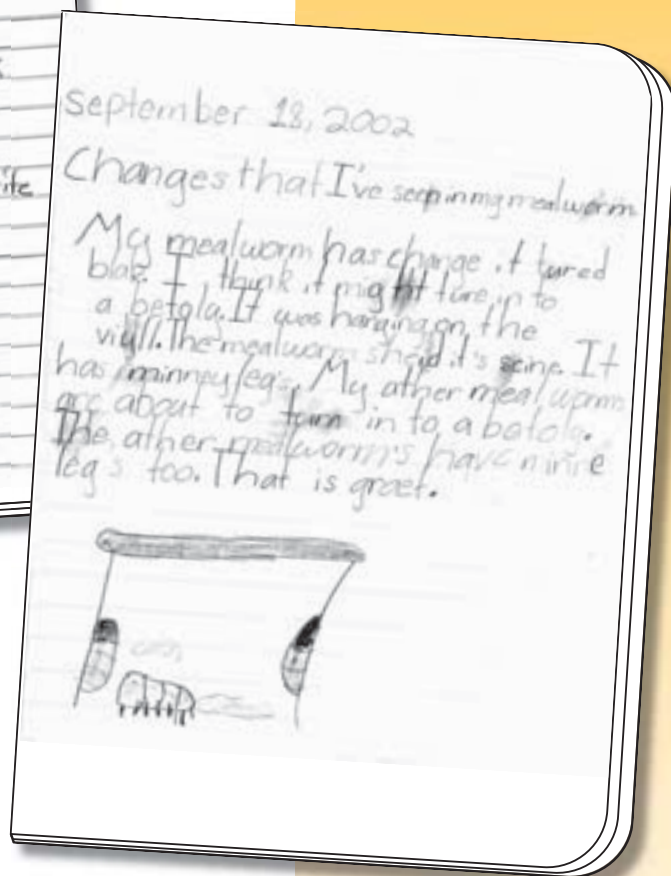 ife
september 18, 2002
Changes that I've seen in my mealworm
My mealworm has change. it tured
blak. I think it might ture in to
a betola. It was hanging on the
viall. The mealworm shead it's scine. It
has minney leg's. My ather meal worms
are about to turn in to a batola.
The ather mealworm's have minne
leg's too. That is graet.